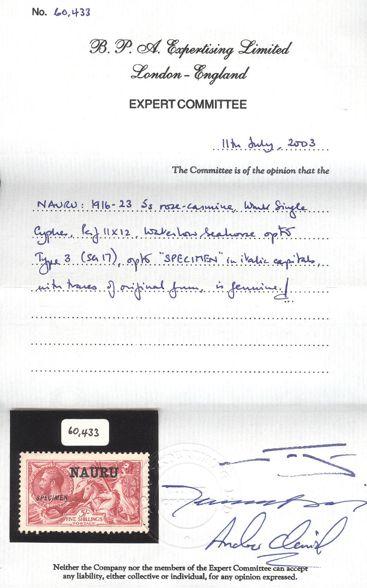 No. 60,433
B. P. A. Expertising Limited
London - England
EXPERT COMMITTEE
11th July, 2003
The Committee is of the opinion that the
NAURU: 1916-23 5s rose-carmine, Wmk Single
Cypher, Perf 11X12, Waterlow Seahorse optd
Type 3 (SG 17), optd "SPECIMEN" in italic capitals,
with traces of original gum, is genuine.
60,433
NAURU
SPECIMEN
FIVE SHILLINGS
POSTAGE
Neither the Company nor the members of the Expert Committee can accept
any liability, either collective or individual, for any opinion expressed.